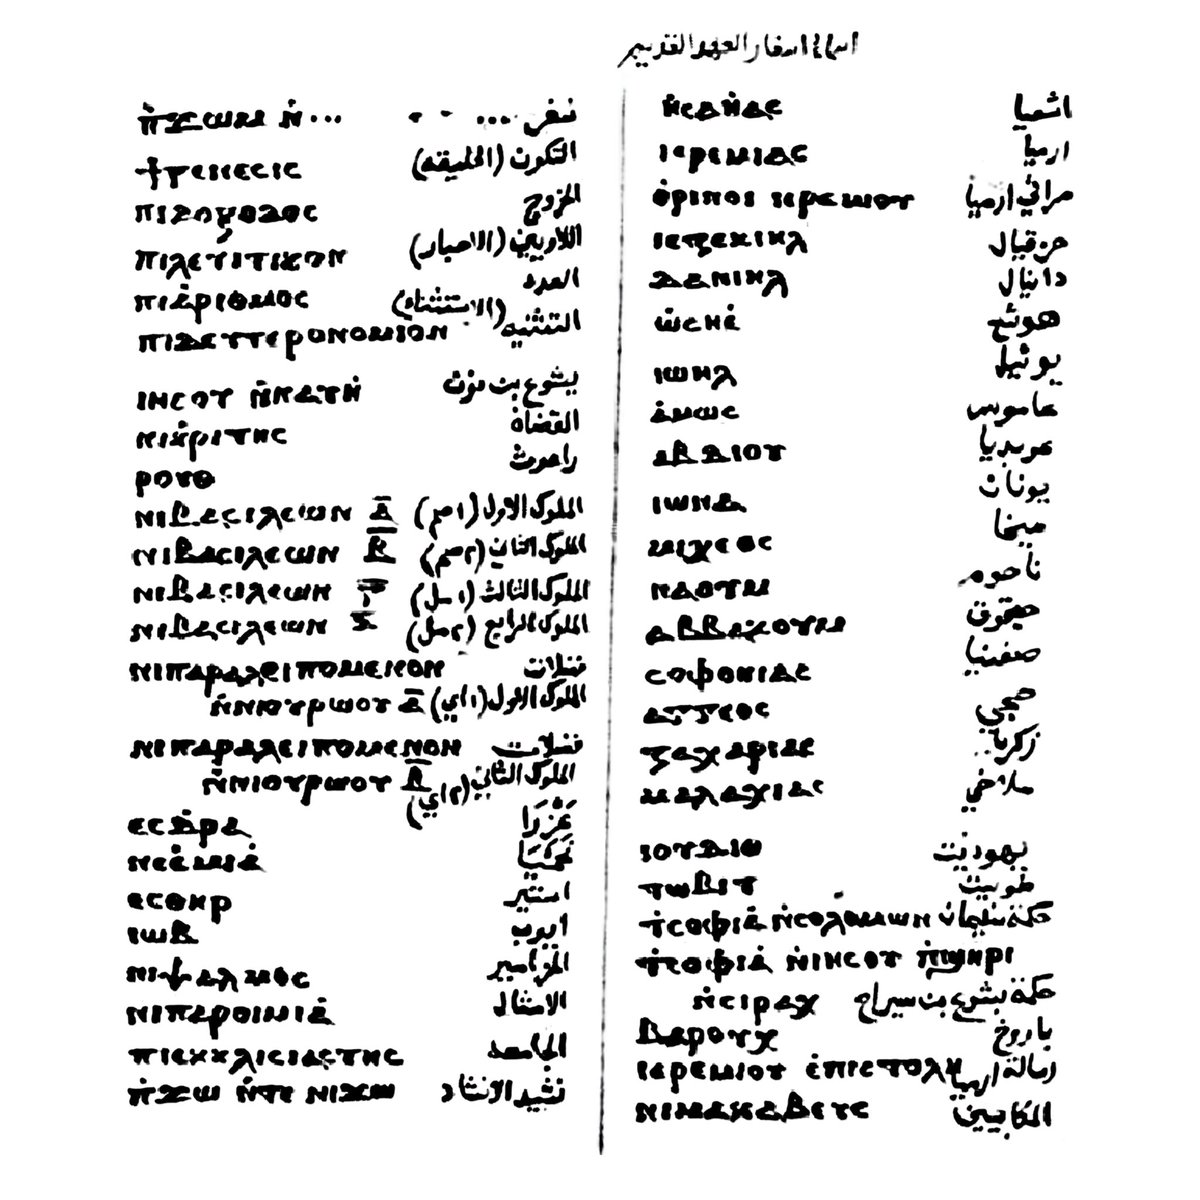 اسماء اسفار العهد القديم
ⲡ̀ϫⲱⲙ ⲛ̀... . . ... سفر
ϯⲅⲉⲛⲉⲥⲓⲥ التكون (الخليقه)
ⲡⲓⲇⲟⲝⲟⲇⲟⲥ الخروج
ⲡⲓⲗⲉⲩⲓⲧⲓⲕⲟⲛ اللاويين (الاحبار)
ⲡⲓⲁ̀ⲣⲓⲑⲙⲟⲥ العدد
ⲡⲓⲇⲉⲩⲧⲉⲣⲟⲛⲟⲙⲓⲟⲛ التثنيه (الاستثناء)
ⲓⲏⲥⲟⲩ ⲛ̀ⲛⲁⲩⲏ̀ يشوع بن نون
ⲛⲓⲕ̀ⲣⲓⲧⲏⲥ القضاة
ⲣⲟⲩⲑ راعوث
ⲛⲓⲃⲁⲥⲓⲗⲉⲱⲛ ⲁ̅ الملوك الاول (١صم)
ⲛⲓⲃⲁⲥⲓⲗⲉⲱⲛ ⲃ̅ الملوك الثاني (٢صم)
ⲛⲓⲃⲁⲥⲓⲗⲉⲱⲛ ⲅ̅ الملوك الثالث (١مل)
ⲛⲓⲃⲁⲥⲓⲗⲉⲱⲛ ⲇ̅ الملوك الرابع (٢مل)
ⲛⲓⲡⲁⲣⲁⲗⲉⲓⲡⲟⲙⲉⲛⲟⲛ فضلات
ⲛ̀ⲛⲓⲟⲩⲣⲱⲟⲩ ⲁ̅ الملوك الاول (١اي)
ⲛⲓⲡⲁⲣⲁⲗⲉⲓⲡⲟⲙⲉⲛⲟⲛ فضلات
ⲛ̀ⲛⲓⲟⲩⲣⲱⲟⲩ ⲃ̅ الملوك الثاني (٢اي)
ⲉⲥⲇⲣⲁ عَزْرَا
ⲛⲉⲉ̀ⲙⲓⲁ̀ نَحَمْيَا
ⲉⲥⲑⲏⲣ استير
ⲓⲱⲃ ايوب
ⲛⲓⲯⲁⲗⲙⲟⲥ المزامير
ⲛⲓⲡⲁⲣⲟⲓⲙⲓⲁ̀ الامثال
ⲡⲓⲉⲕⲕⲗⲓⲥⲓⲁⲥⲧⲏⲥ الجامعه
ⲡ̀ϫⲱ ⲛ̀ⲧⲉ ⲛⲓϫⲱ نشيد الانشاد
ⲏ̀ⲥⲁⲏ̀ⲁⲥ اشعيا
ⲓⲉⲣⲉⲙⲓⲁⲥ ارميا
ⲑ̀ⲣⲓⲛⲟⲓ ⲓⲉⲣⲉⲙⲟⲩ مراثي ارميا
ⲓⲉⲍⲉⲕⲓⲏⲗ حزقيال
ⲇⲁⲛⲓⲏⲗ دانيال
ⲱ̀ⲥⲏⲉ̀ هوشع
ⲓⲱⲏⲗ يوئيل
ⲁ̀ⲙⲱⲥ عاموس
ⲁⲃⲇⲓⲟⲩ عوبديا
ⲓⲱⲛⲁ يونان
ⲙⲓⲭⲉⲟⲥ ميخا
ⲛⲁⲟⲩⲙ ناحوم
ⲁⲃⲃⲁⲕⲟⲩⲙ حبقوق
ⲥⲟⲫⲟⲛⲓⲁⲥ صفنيا
ⲁⲅⲅⲉⲟⲥ حجي
ⲍⲁⲭⲁⲣⲓⲁⲥ زكريا
ⲙⲁⲗⲁⲭⲓⲁⲥ ملاخي
ⲓⲟⲩⲇⲓⲑ يهوديت
ⲧⲱⲃⲓⲧ طوبيت
ϯⲥⲟⲫⲓⲁ̀ ⲛ̀ⲥⲟⲗⲟⲙⲱⲛ حكمة سليمان
ϯⲥⲟⲫⲓⲁ̀ ⲛ̀ⲓⲏⲥⲟⲩ ⲡ̀ϣⲏⲣⲓ
ⲛ̀ⲥⲓⲣⲁⲭ حكمة يشوع بن سيراخ
ⲃⲁⲣⲟⲩⲭ باروخ
ⲓⲉⲣⲉⲙⲓⲟⲩ ⲉ̀ⲡⲓⲥⲧⲟⲗⲏ رسالة ارميا
ⲛⲓⲙⲁⲕⲁⲃⲉⲩⲥ المكابيين